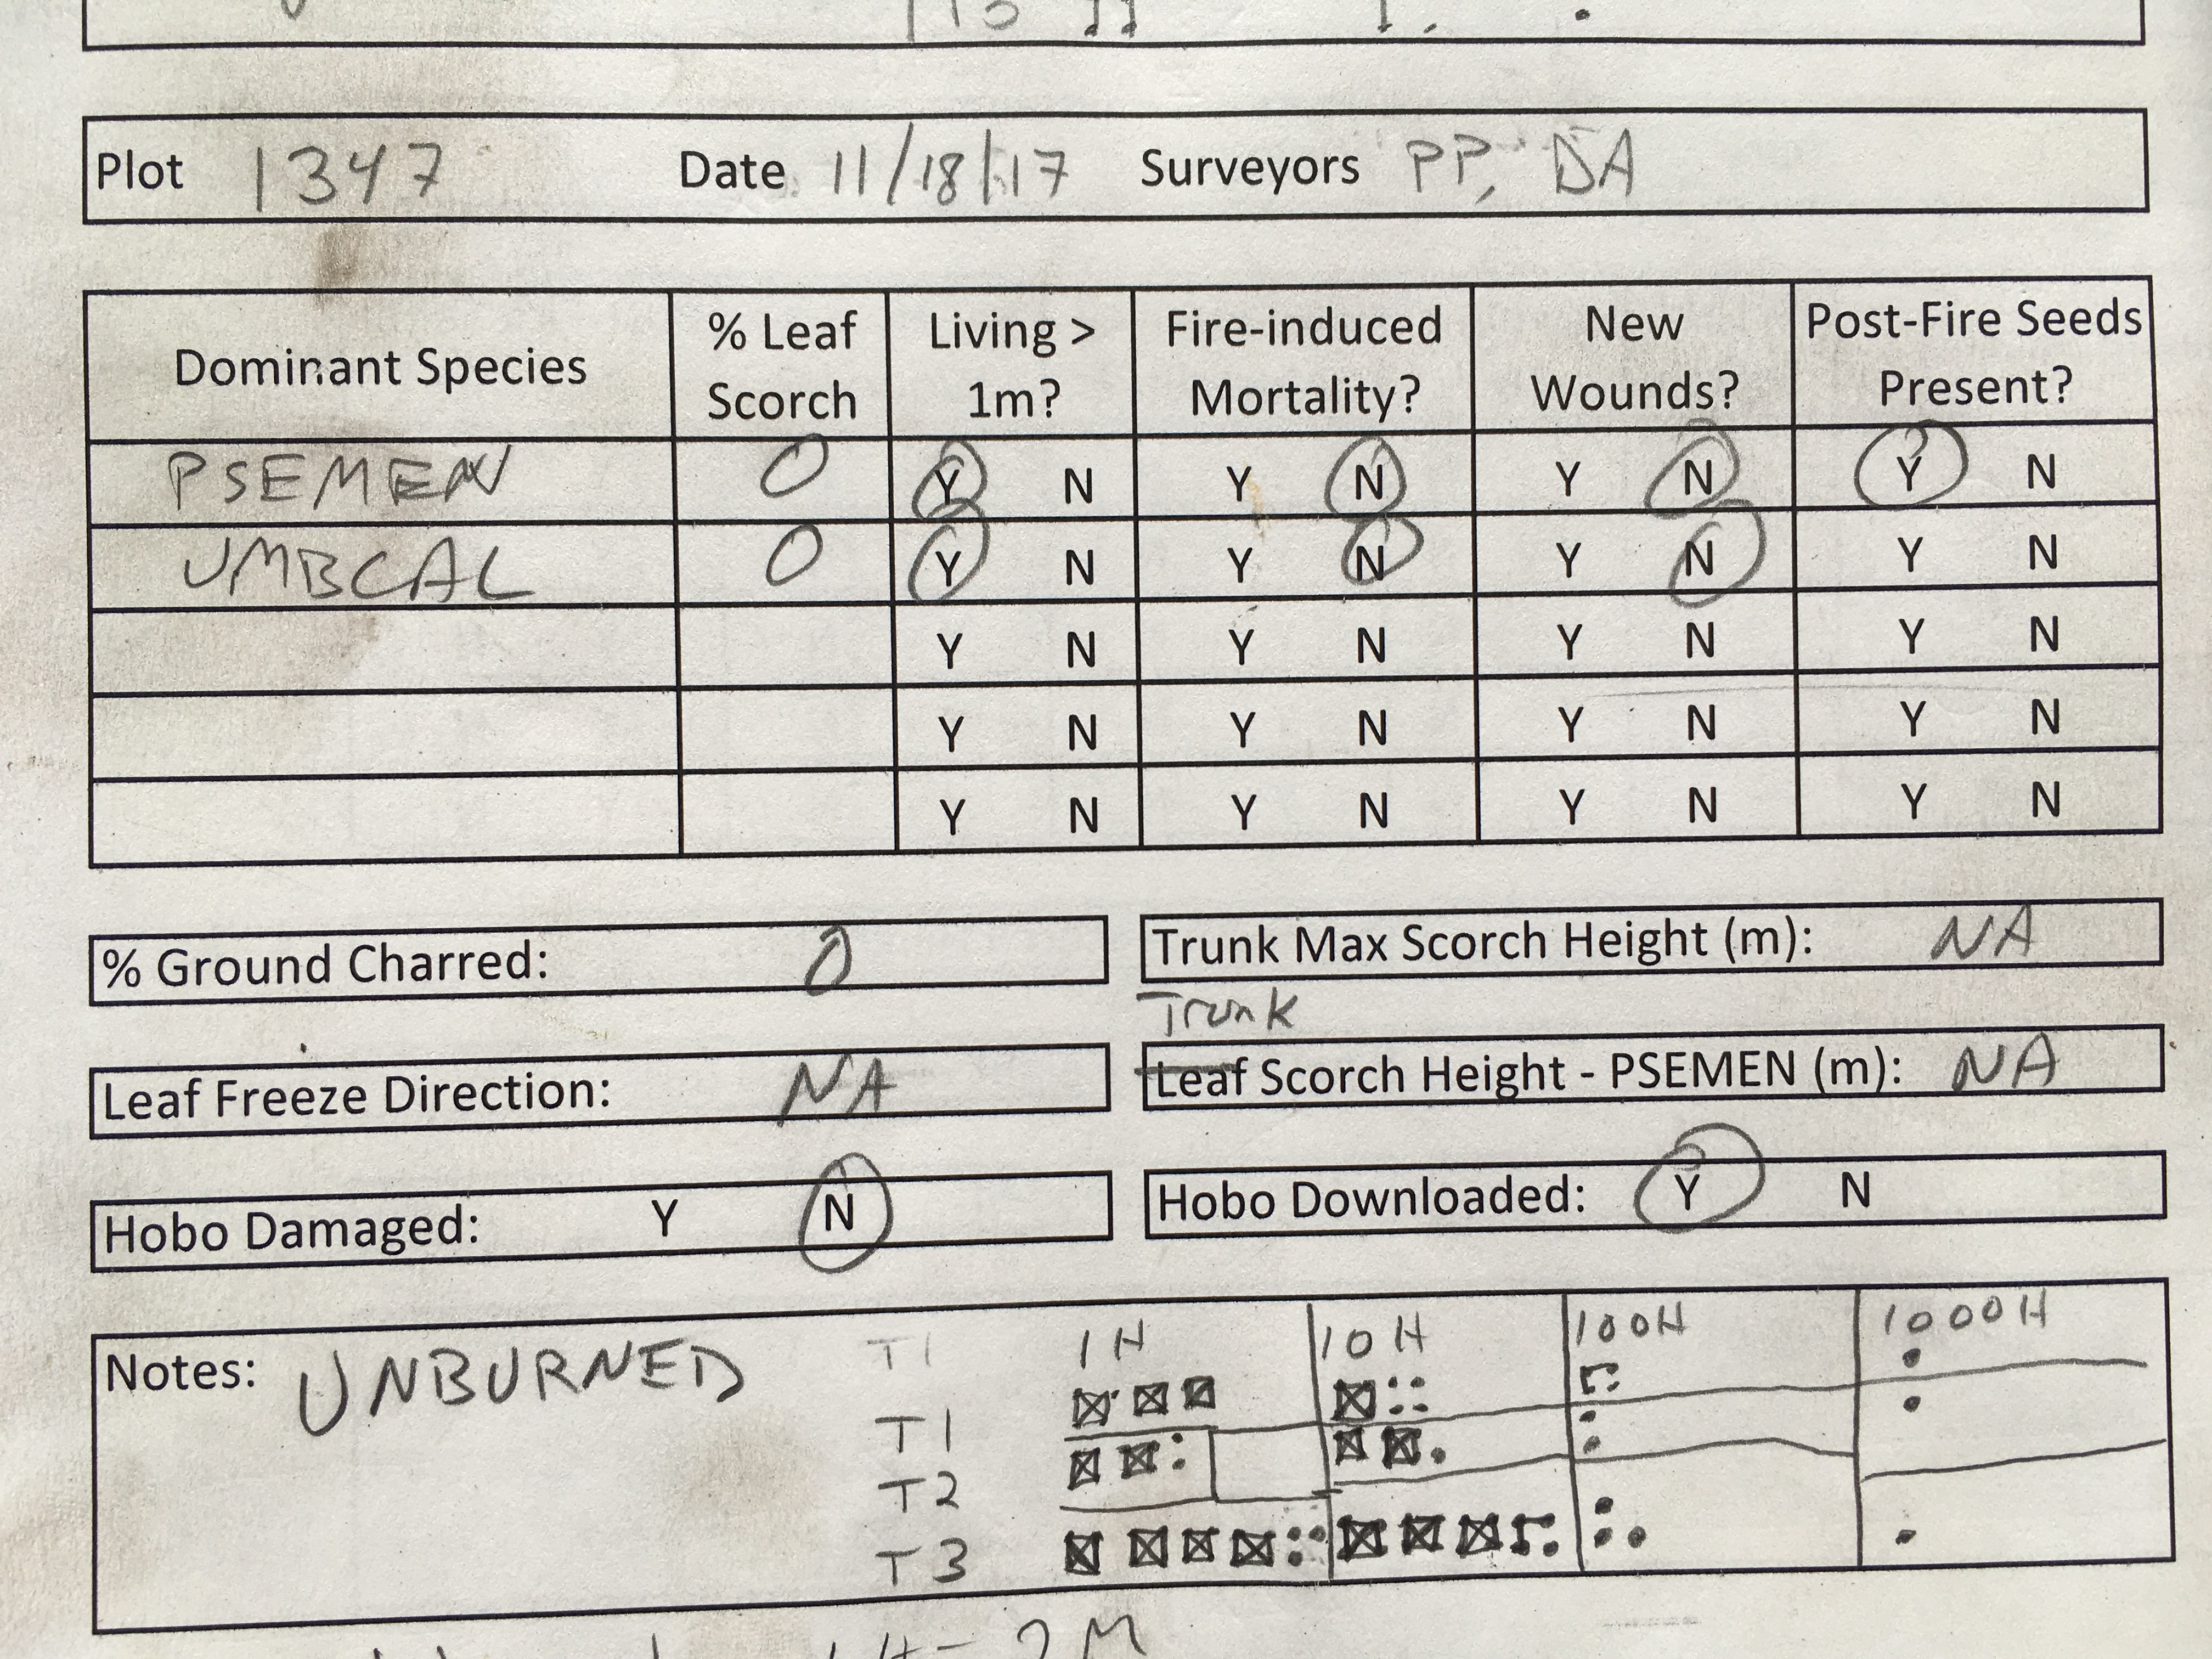 Plot 1347 Date 11/18/17 Surveyors PP, DA
Dominant Species % Leaf Scorch Living > 1m? Fire-induced Mortality? New Wounds? Post-Fire Seeds Present?
PSEMEN 0 Y N Y N Y N Y N
UMBCAL 0 Y N Y N Y N Y N
Y N Y N Y N Y N
Y N Y N Y N Y N
Y N Y N Y N Y N
% Ground Charred: 0 Trunk Max Scorch Height (m): NA
Trunk
Leaf Freeze Direction: NA Leaf Scorch Height - PSEMEN (m): NA
Hobo Damaged: Y N Hobo Downloaded: Y N
Notes: UNBURNED T1 1H 10H 100H 1000H
T1
T2
T3